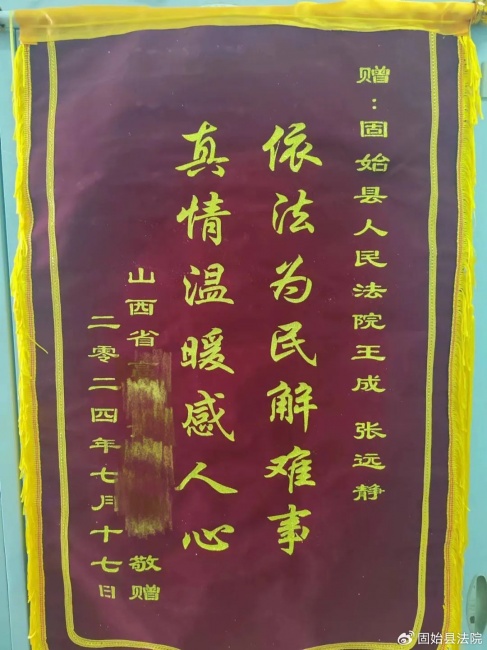 赠：固始县人民法院王成 张远静
依法为民解难事
真情温暖感人心
山西省 敬赠
二零二四年七月十七日
固始县法院